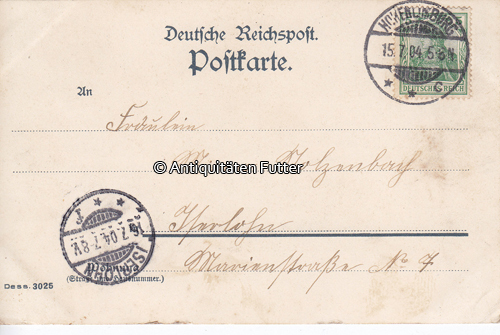 Deutsche Reichspost.
Postkarte.
HOHENLIMBURG
15.7.04.5-6N
* * C
DEUTSCHES REICH
An
Fräulein
Holzenbach
© Antiquitäten Futter
Iserlohn
Marienstraße No 7
ISERLOHN
16.7.04.7-8V.
* * f
Wohnung
(Straße und Hausnummer.)
Dess. 3025